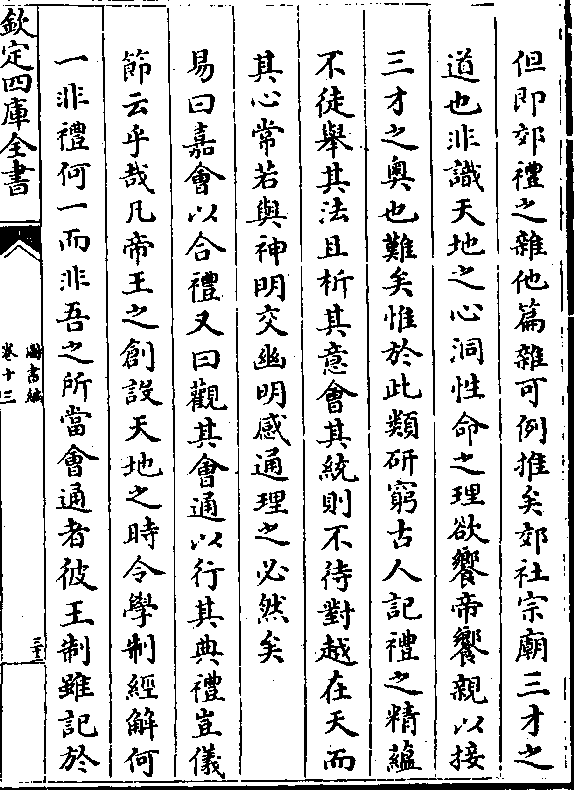 但即郊禮之雜他篇雜可例推矣郊社宗廟三才之
道也非識天地之心洞性命之理欲饗帝饗親以接
三才之奧也難矣惟於此類研窮古人記禮之精蘊
不徒舉其法且析其意會其統則不待對越在天而
其心常若與神明交幽明感通理之必然矣
易曰嘉會以合禮又曰觀其會通以行其典禮豈儀
節云乎哉凡帝王之創設天地之時令學制經解何
一非禮何一而非吾之所當會通者彼王制雖記於
欽定四庫全書
圖書編
卷十三
三十二